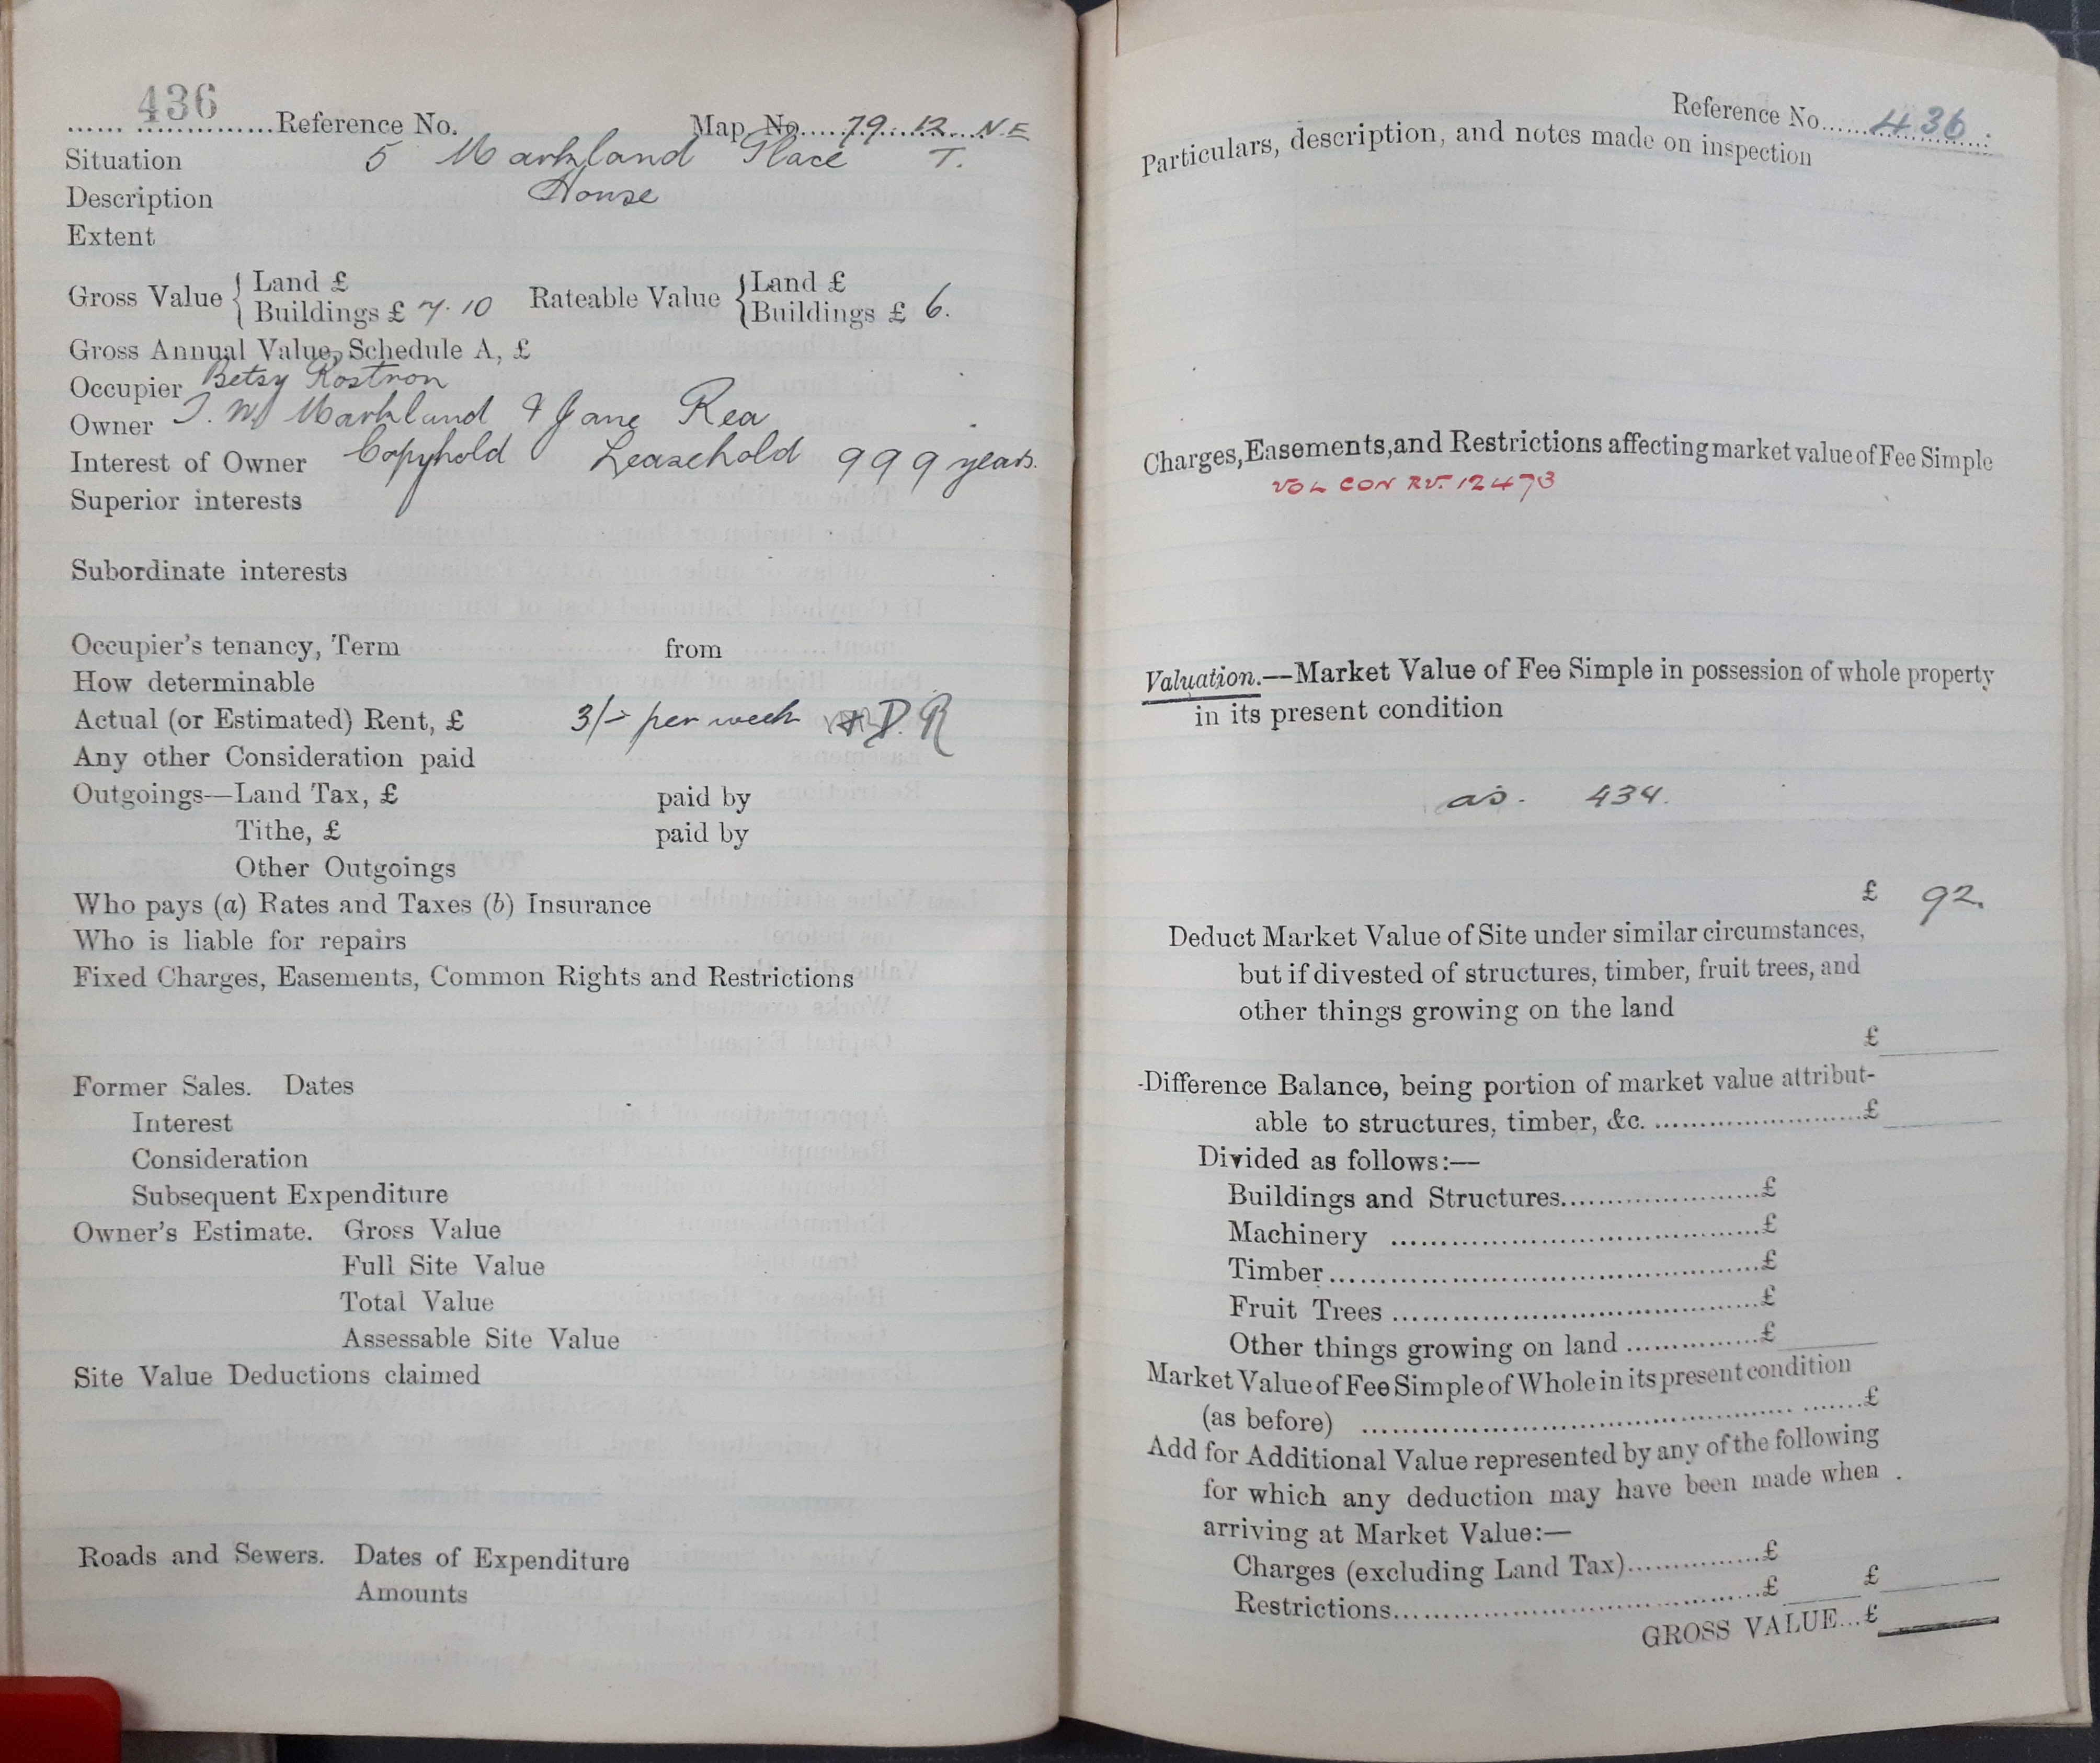 436 Reference No. Map No. 79.12. N.E
Situation 5 Markland Place T.
Description House
Extent
Gross Value { Land £
Buildings £ 7.10 Rateable Value { Land £
Buildings £ 6.
Gross Annual Value, Schedule A, £
Occupier Betsy Rostron
Owner T. W. Markland & Jane Rea
Interest of Owner Copyhold Leasehold 999 years.
Superior interests
Subordinate interests
Occupier's tenancy, Term from
How determinable
Actual (or Estimated) Rent, £ 3/- per week D. R
Any other Consideration paid
Outgoings—Land Tax, £ paid by
Tithe, £ paid by
Other Outgoings
Who pays (a) Rates and Taxes (b) Insurance
Who is liable for repairs
Fixed Charges, Easements, Common Rights and Restrictions
Former Sales. Dates
Interest
Consideration
Subsequent Expenditure
Owner's Estimate. Gross Value
Full Site Value
Total Value
Assessable Site Value
Site Value Deductions claimed
Roads and Sewers. Dates of Expenditure
Amounts
Reference No. 436
Particulars, description, and notes made on inspection
Charges, Easements, and Restrictions affecting market value of Fee Simple
VOL CON RV. 12473
Valuation.—Market Value of Fee Simple in possession of whole property
in its present condition
as. 434.
£ 92.
Deduct Market Value of Site under similar circumstances,
but if divested of structures, timber, fruit trees, and
other things growing on the land
£
Difference Balance, being portion of market value attribut-
able to structures, timber, &c. £
Divided as follows:—
Buildings and Structures £
Machinery £
Timber £
Fruit Trees £
Other things growing on land £
Market Value of Fee Simple of Whole in its present condition
(as before) £
Add for Additional Value represented by any of the following
for which any deduction may have been made when
arriving at Market Value:—
Charges (excluding Land Tax) £
Restrictions £ £
GROSS VALUE... £